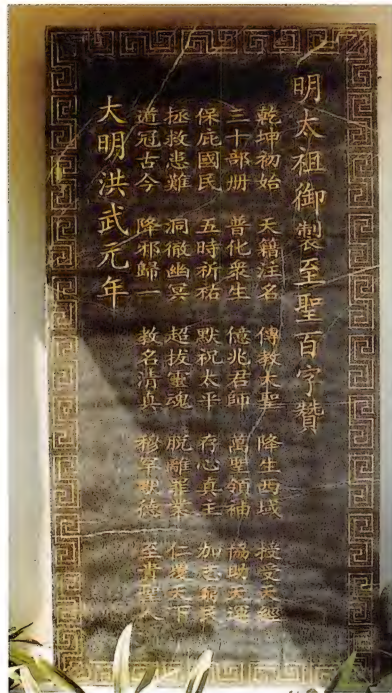 明太祖御製至聖百字贊
乾坤初始 天籍注名 傳教大聖 降生西域 授受天經
三十部册 普化衆生 億兆君師 萬聖領袖 協助天運
保庇國民 五時祈祐 默祝太平 存心真主 加志窮民
拯救患難 洞徹幽冥 超拔靈魂 脱離罪業 仁覆天下
道冠古今 降邪歸一 教名清真 穆罕默德 至貴聖人
大明洪武元年